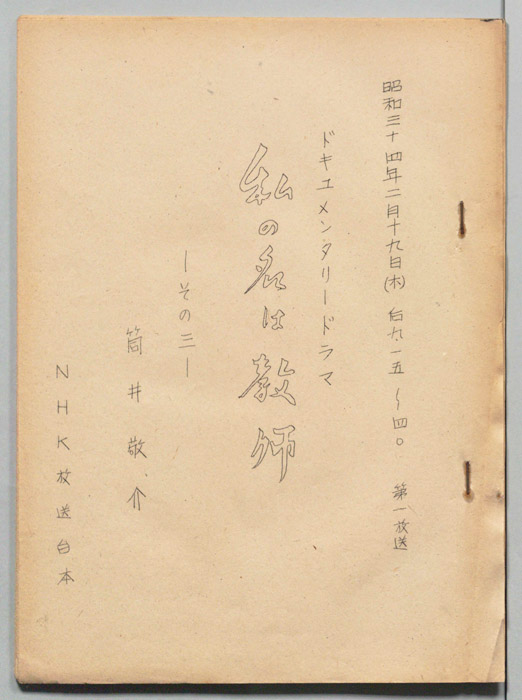 昭和三十四年二月十九日(木) 后九・一五～四〇 第一放送
ドキュメンタリードラマ
私の名は教師
―その三―
筒井敬介
NHK放送台本